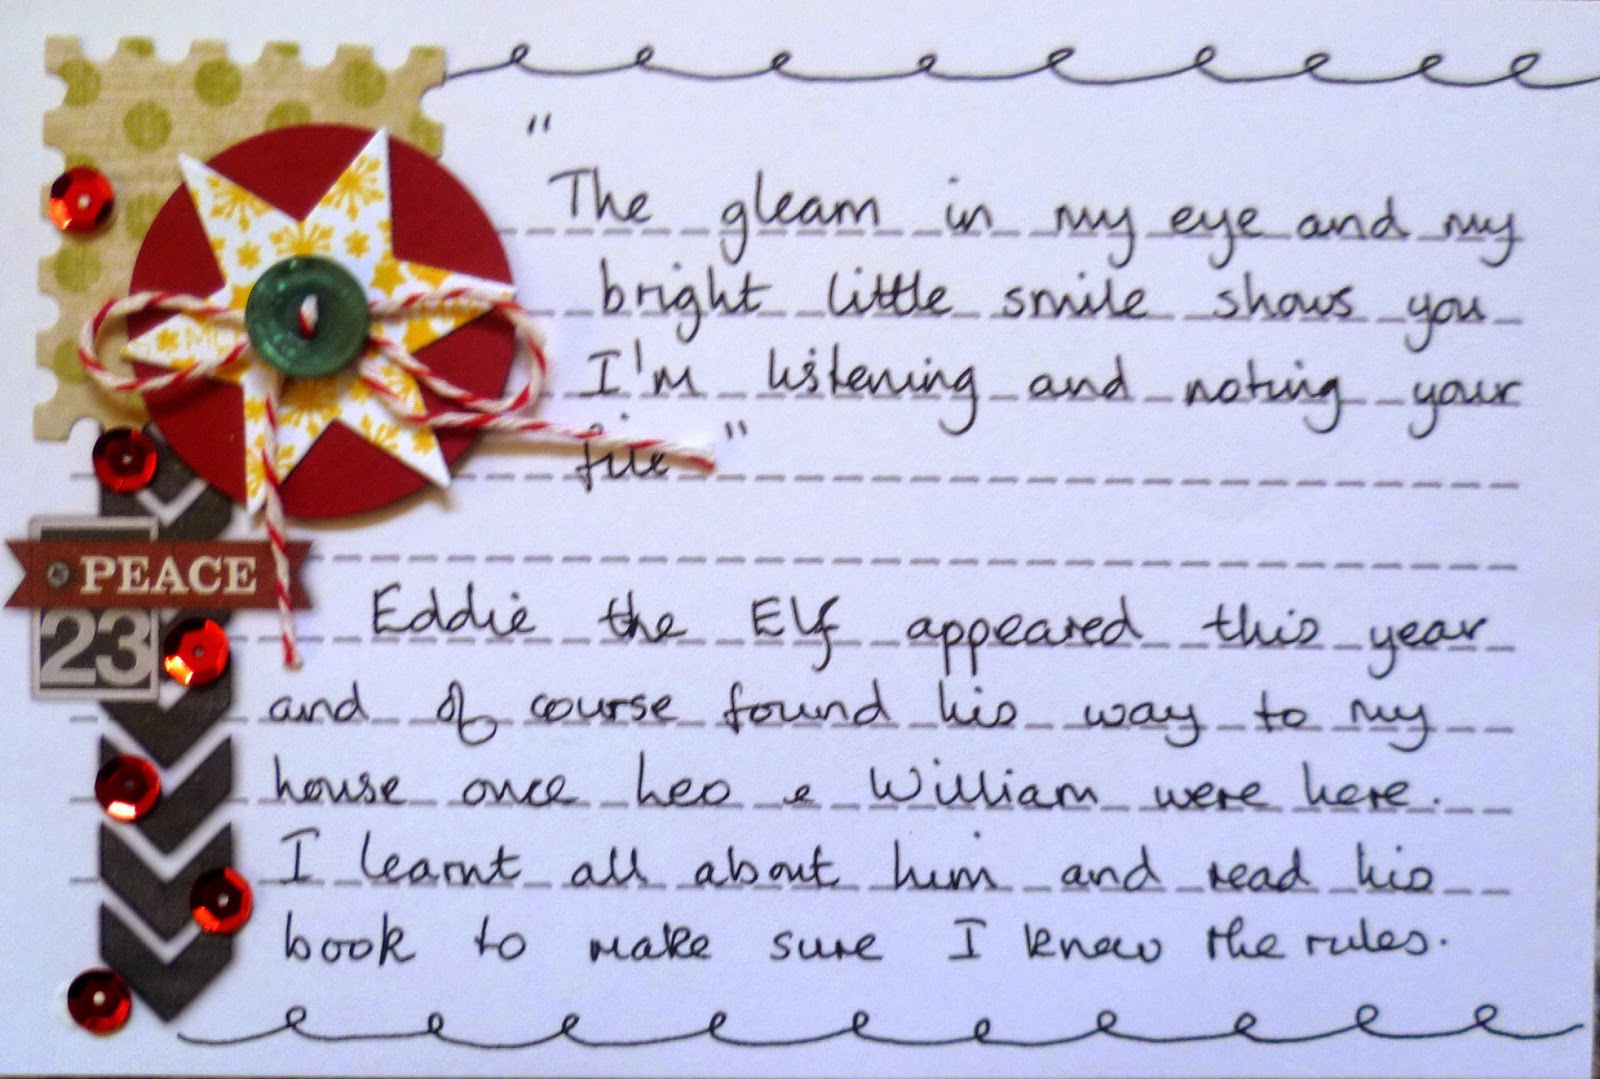 "
The gleam in my eye and my
bright little smile shows you
I'm listening and noting your
file "
PEACE
23
Eddie the Elf appeared this year
and of course found his way to my
house once Leo & William were here.
I learnt all about him and read his
book to make sure I knew the rules.